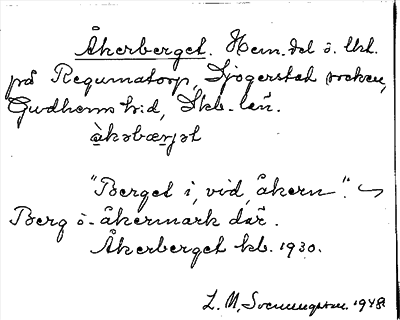 Åkerberget. Hem.del ö. lht.
på Regumatorp, Sjogerstad socken,
Gudhems h:d, Skb. län.
àkəbærjət
"Berget i, vid, åkern".
Berg o. åkermark där.
Åkerberget kb. 1930.
L. M. Svenungsson. 1948.